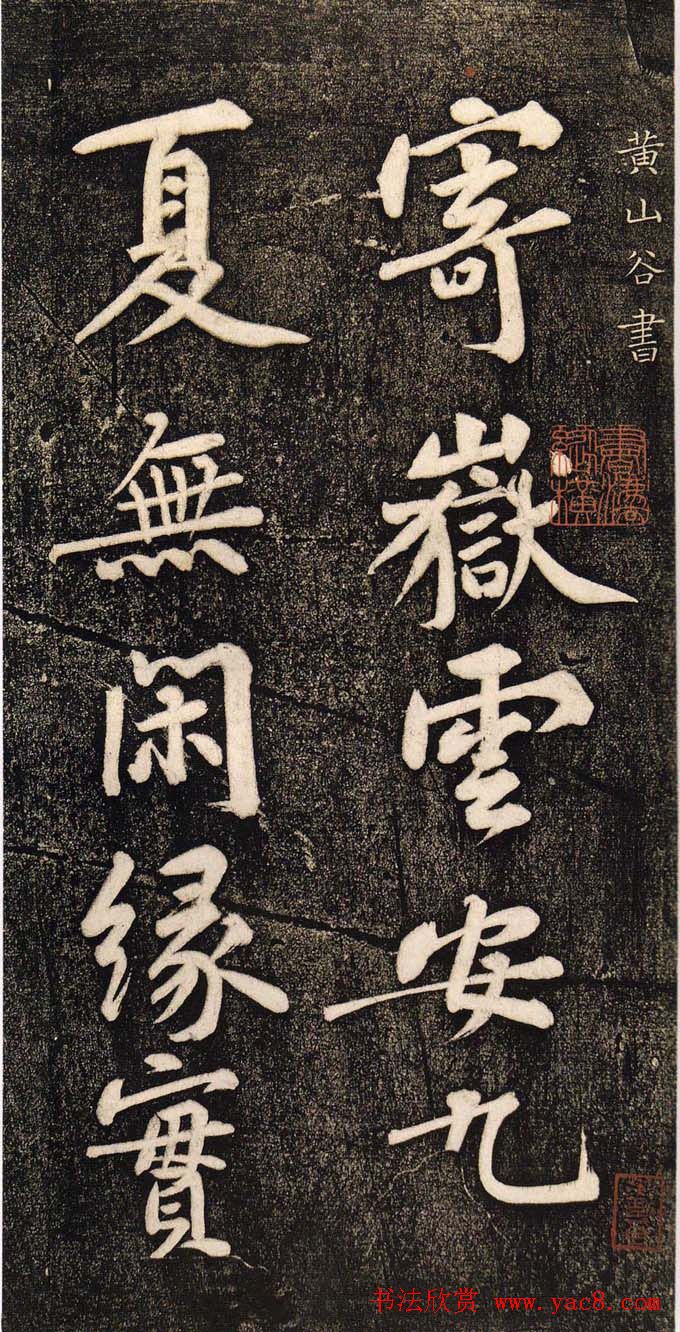 黄山谷書
寄嶽雲安九
夏無閑緣實
书法欣赏 www.yac8.com